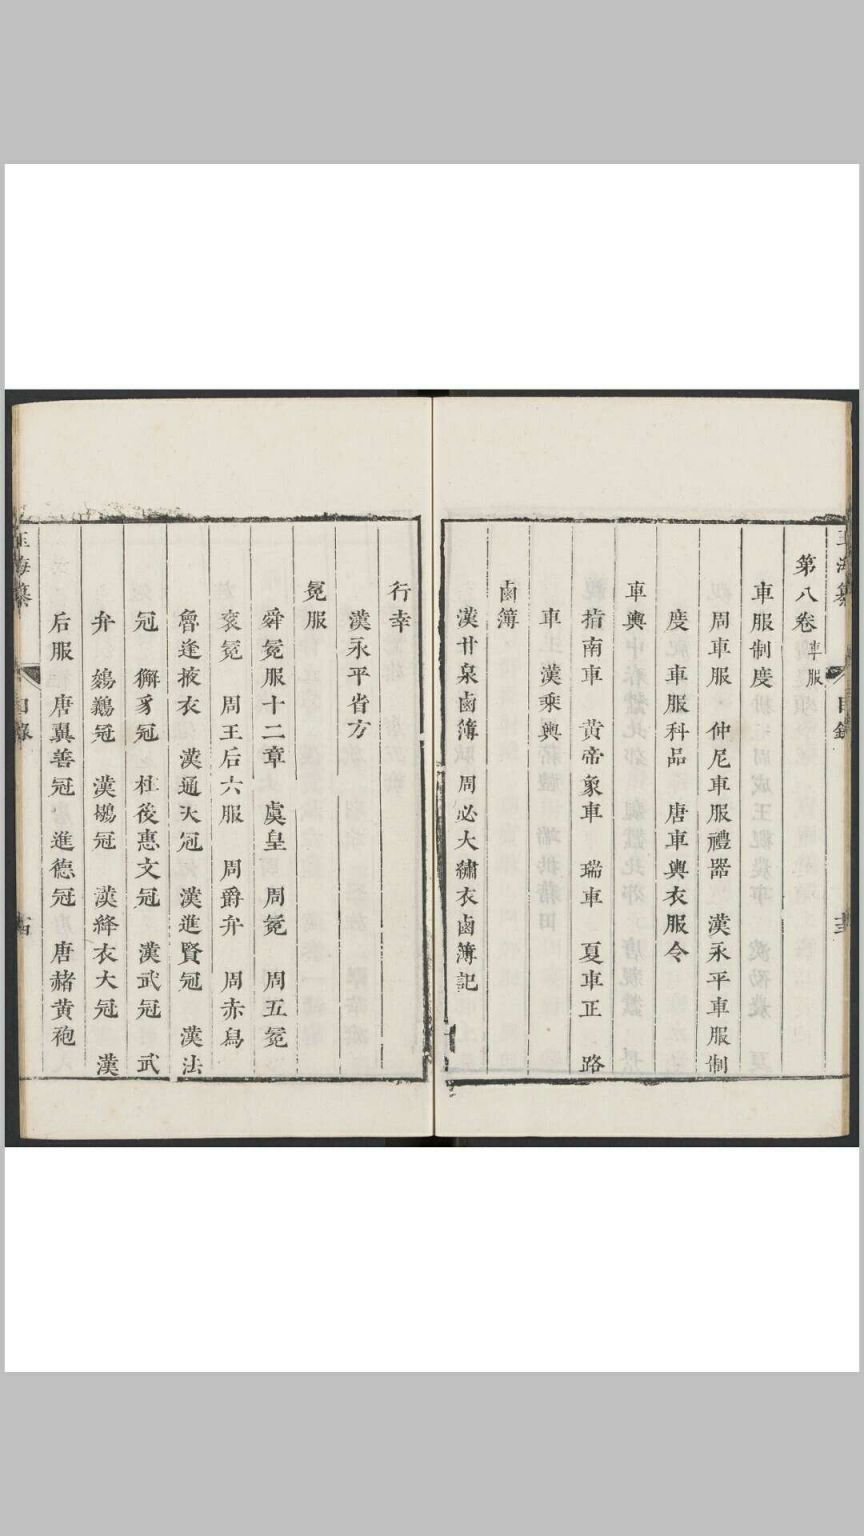 第八卷 車服
車服制度
周車服　仲尼車服禮器　漢永平車服制
度　車服科品　唐車輿衣服令
車輿
指南車　黃帝象車　瑞車　夏車正　路
車　漢乘輿
鹵簿
漢甘泉鹵簿　周必大繡衣鹵簿記
行幸
漢永平省方
冕服
舜冕服十二章　虞皇　周冕　周五冕
袞冕　周王后六服　周爵弁　周赤舄
魯逢掖衣　漢通天冠　漢進賢冠　漢法
冠　獬豸冠　柱後惠文冠　漢武冠　武
弁　鵔鸃冠　漢鶡冠　漢絳衣大冠　漢
后服　唐翼善冠　進德冠　唐赭黃袍
玉海纂
目錄